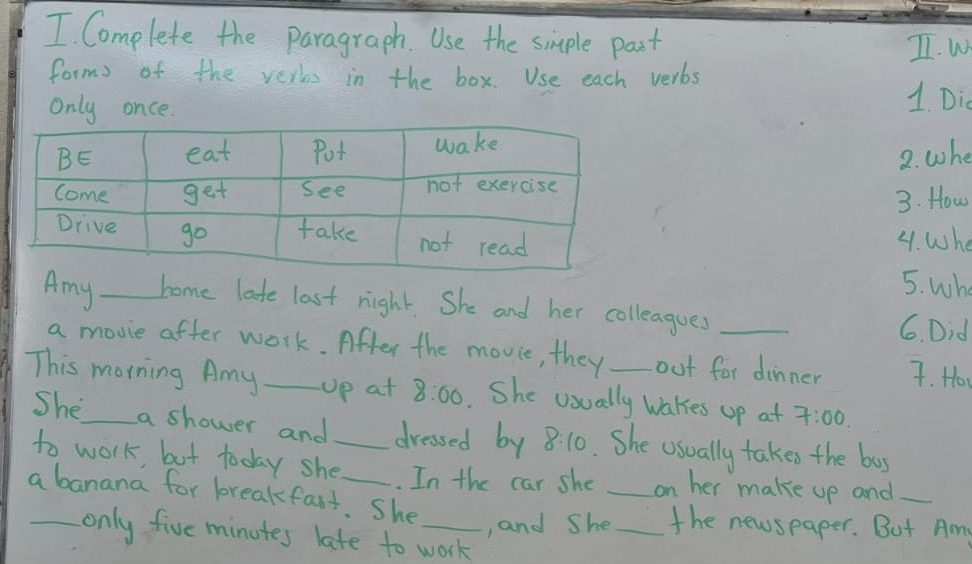 I. Complete the paragraph. Use the simple past
forms of the verbs in the box. Use each verbs
only once.
BE eat Put wake
Come get see not exercise
Drive go take not read
Amy ___ home late last night. She and her colleagues ___
a movie after work. After the movie, they ___ out for dinner
This morning Amy ___ up at 8:00. She usually wakes up at 7:00.
She ___ a shower and ___ dressed by 8:10. She usually takes the bus
to work, but today she ___. In the car she ___ on her make up and ___
a banana for breakfast. She ___, and she ___ the newspaper. But Amy
___ only five minutes late to work
II. W
1. Did
2. Whe
3. How
4. Whe
5. Whe
6. Did
7. How